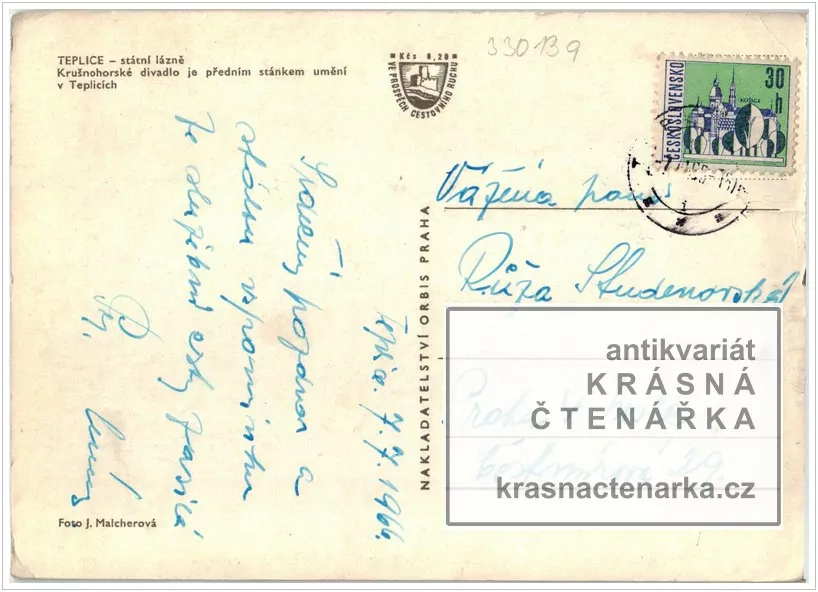 TEPLICE – státní lázně
Krušnohorské divadlo je předním stánkem umění
v Teplicích
Kčs 0,20
VE PROSPĚCH CESTOVNÍHO RUCHU
330139
ČESKOSLOVENSKO
30
h
Teplice 7.7.1966.
Srdečný pozdrav a
stálou vzpomínku
ze služební cesty zasílá
Foto J. Malcherová
NAKLADATELSTVÍ ORBIS PRAHA
Vážená paní
Růža Studenovská
Praha
29
antikvariát
KRÁSNÁ
ČTENÁŘKA
krasnactenarka.cz